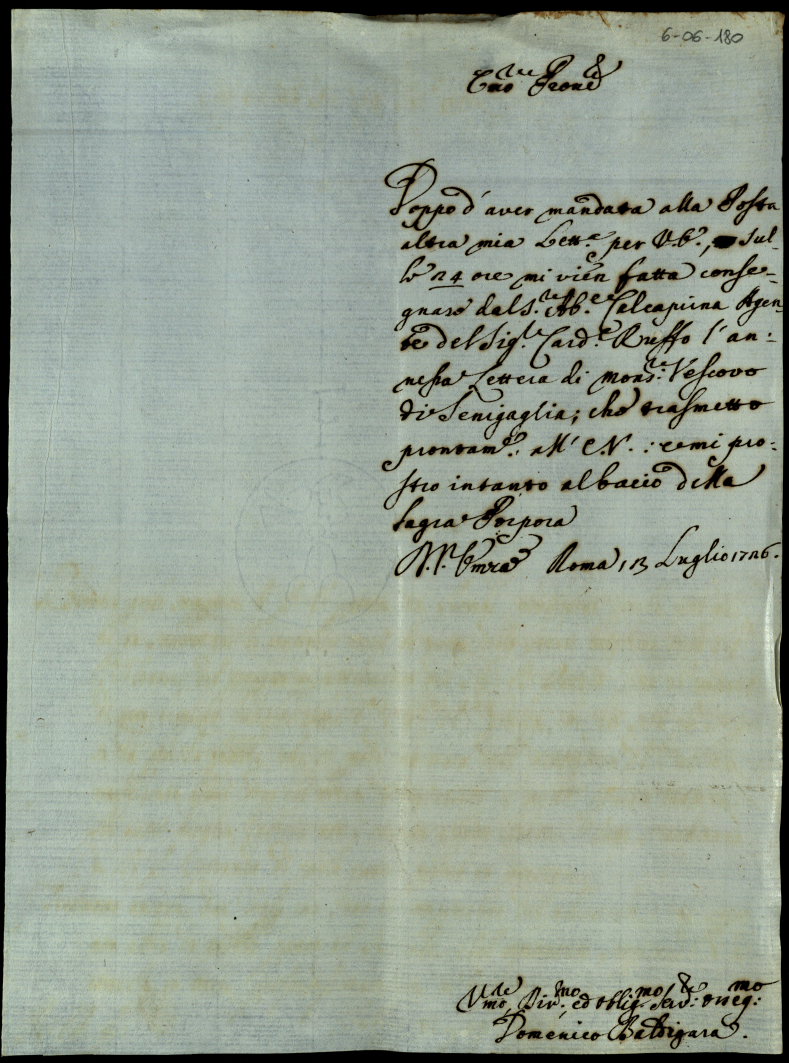 6-06-180
Em.o re Prone
Doppo d' aver mandata alla Posta
altra mia Lett.a per V.E., sul-
le 24 ore mi vien fatta conse-
gnare dal S.re Ab.e Calcaprina Agen-
te del Sig.r Card.e Ruffo l' an:
nessa Lettera di mons.re Vescovo
di Senigaglia; che trasmetto
prontam.e: all' E.V.: e mi pro-
stro intanto al bacio della
Sagra Porpora
Roma, 13 Luglio 1726.
Um.mo, Div.mo, ed oblig.mo Ser.re osseq.mo:
Domenico Baldigara.